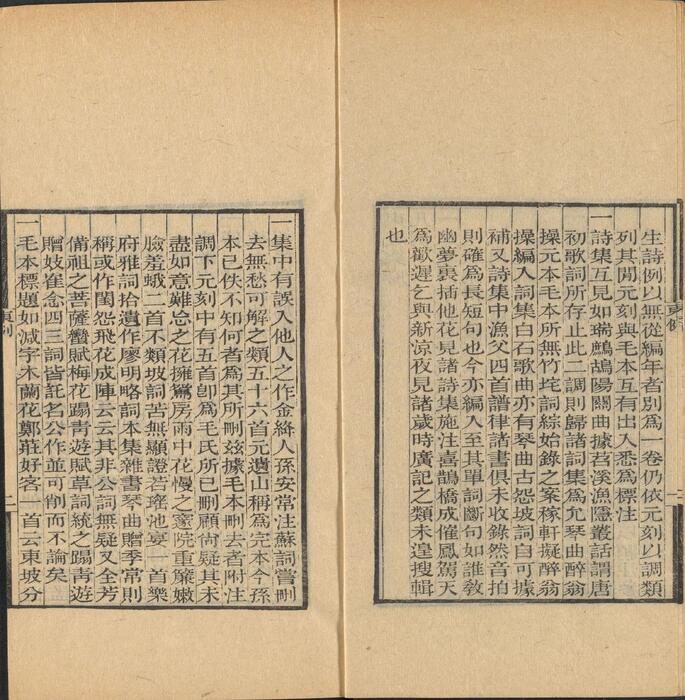 生詩例以無從編年者別爲一卷仍依元刻以調類
列其閒元刻與毛本互有出入悉爲標注
一詩集互見如瑞鷓鴣陽關曲據苕溪漁隱叢話謂唐
初歌詞所存止此二調則歸諸詞集爲允琴曲醉翁
操元本毛本所無竹垞詞綜始錄之案稼軒擬醉翁
操編入詞集白石歌曲亦有琴曲古怨坡詞自可據
補又詩集中漁父四首譜律諸書俱未收錄然音拍
則確爲長短句也今亦編入至其單詞斷句如誰敎
幽夢裏插他花見諸詩集施注喜鵲橋成催鳳駕天
爲歡遲乞與新涼夜見諸歲時廣記之類未遑搜輯
也
一集中有誤入他人之作金絳人孫安常注蘇詞嘗刪
去無愁可解之類五十六首元遺山稱爲完本今孫
本已佚不知何者爲其所刪玆據毛本刪去者附注
調下元刻中有五首卽爲毛氏所已刪顧尙疑其未
盡如意難忘之花擁鴛房雨中花慢之邃院重簾嫩
臉羞蛾二首不類坡詞苦無顯證若瑤池宴一首樂
府雅詞拾遺作廖明略詞本集雜書琴曲贈季常則
稱或作閨怨飛花成陣云云其非公詞無疑又全芳
備祖之菩薩蠻賦梅花蹋靑遊賦草詞統之蹋靑遊
贈妓崔念四三詞皆託名公作並可削而不論矣
一毛本標題如減字木蘭花鄭莊好客一首云東坡分